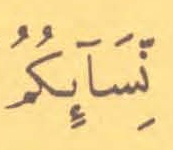 نِّسَآئِكُمُ